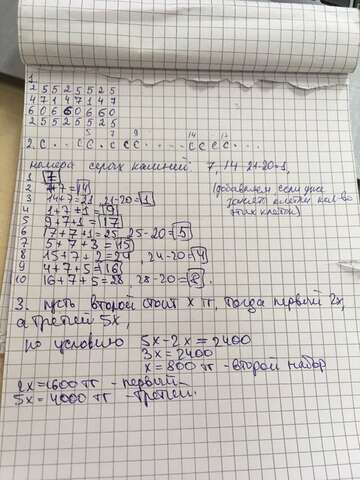 1
2 5 5 2 5 2 5
4 7 1 4 7 1 4 7
6 0 6 6 0 6 6 0
2 5 5 2 5 5 2 5
5 7 9 14 17
2. С . . . С . С С С . . . . С С С С . . .
номера серых камней 7, 14 21-20=1,
1 7
2 7+7=14
3 14+7=21, 21-20=1
4 1+7+1=9
5 9+7+1=17
6 17+7+1=25 25-20=5
7 5+7+3=15
8 15+7+2=24, 24-20=4
9 4+7+5=16
10 16+7+5=28, 28-20=2.
(добавляем если уже
заняты клетки кол-во
этих клеток)
3. пусть второй стоит х тг, тогда первый 2х,
а третий 5х,
по условию 5х-2х=2400
3х=2400
х=800 тг - второй набор
2х=1600 тг - первый
5х=4000 тг - третий.